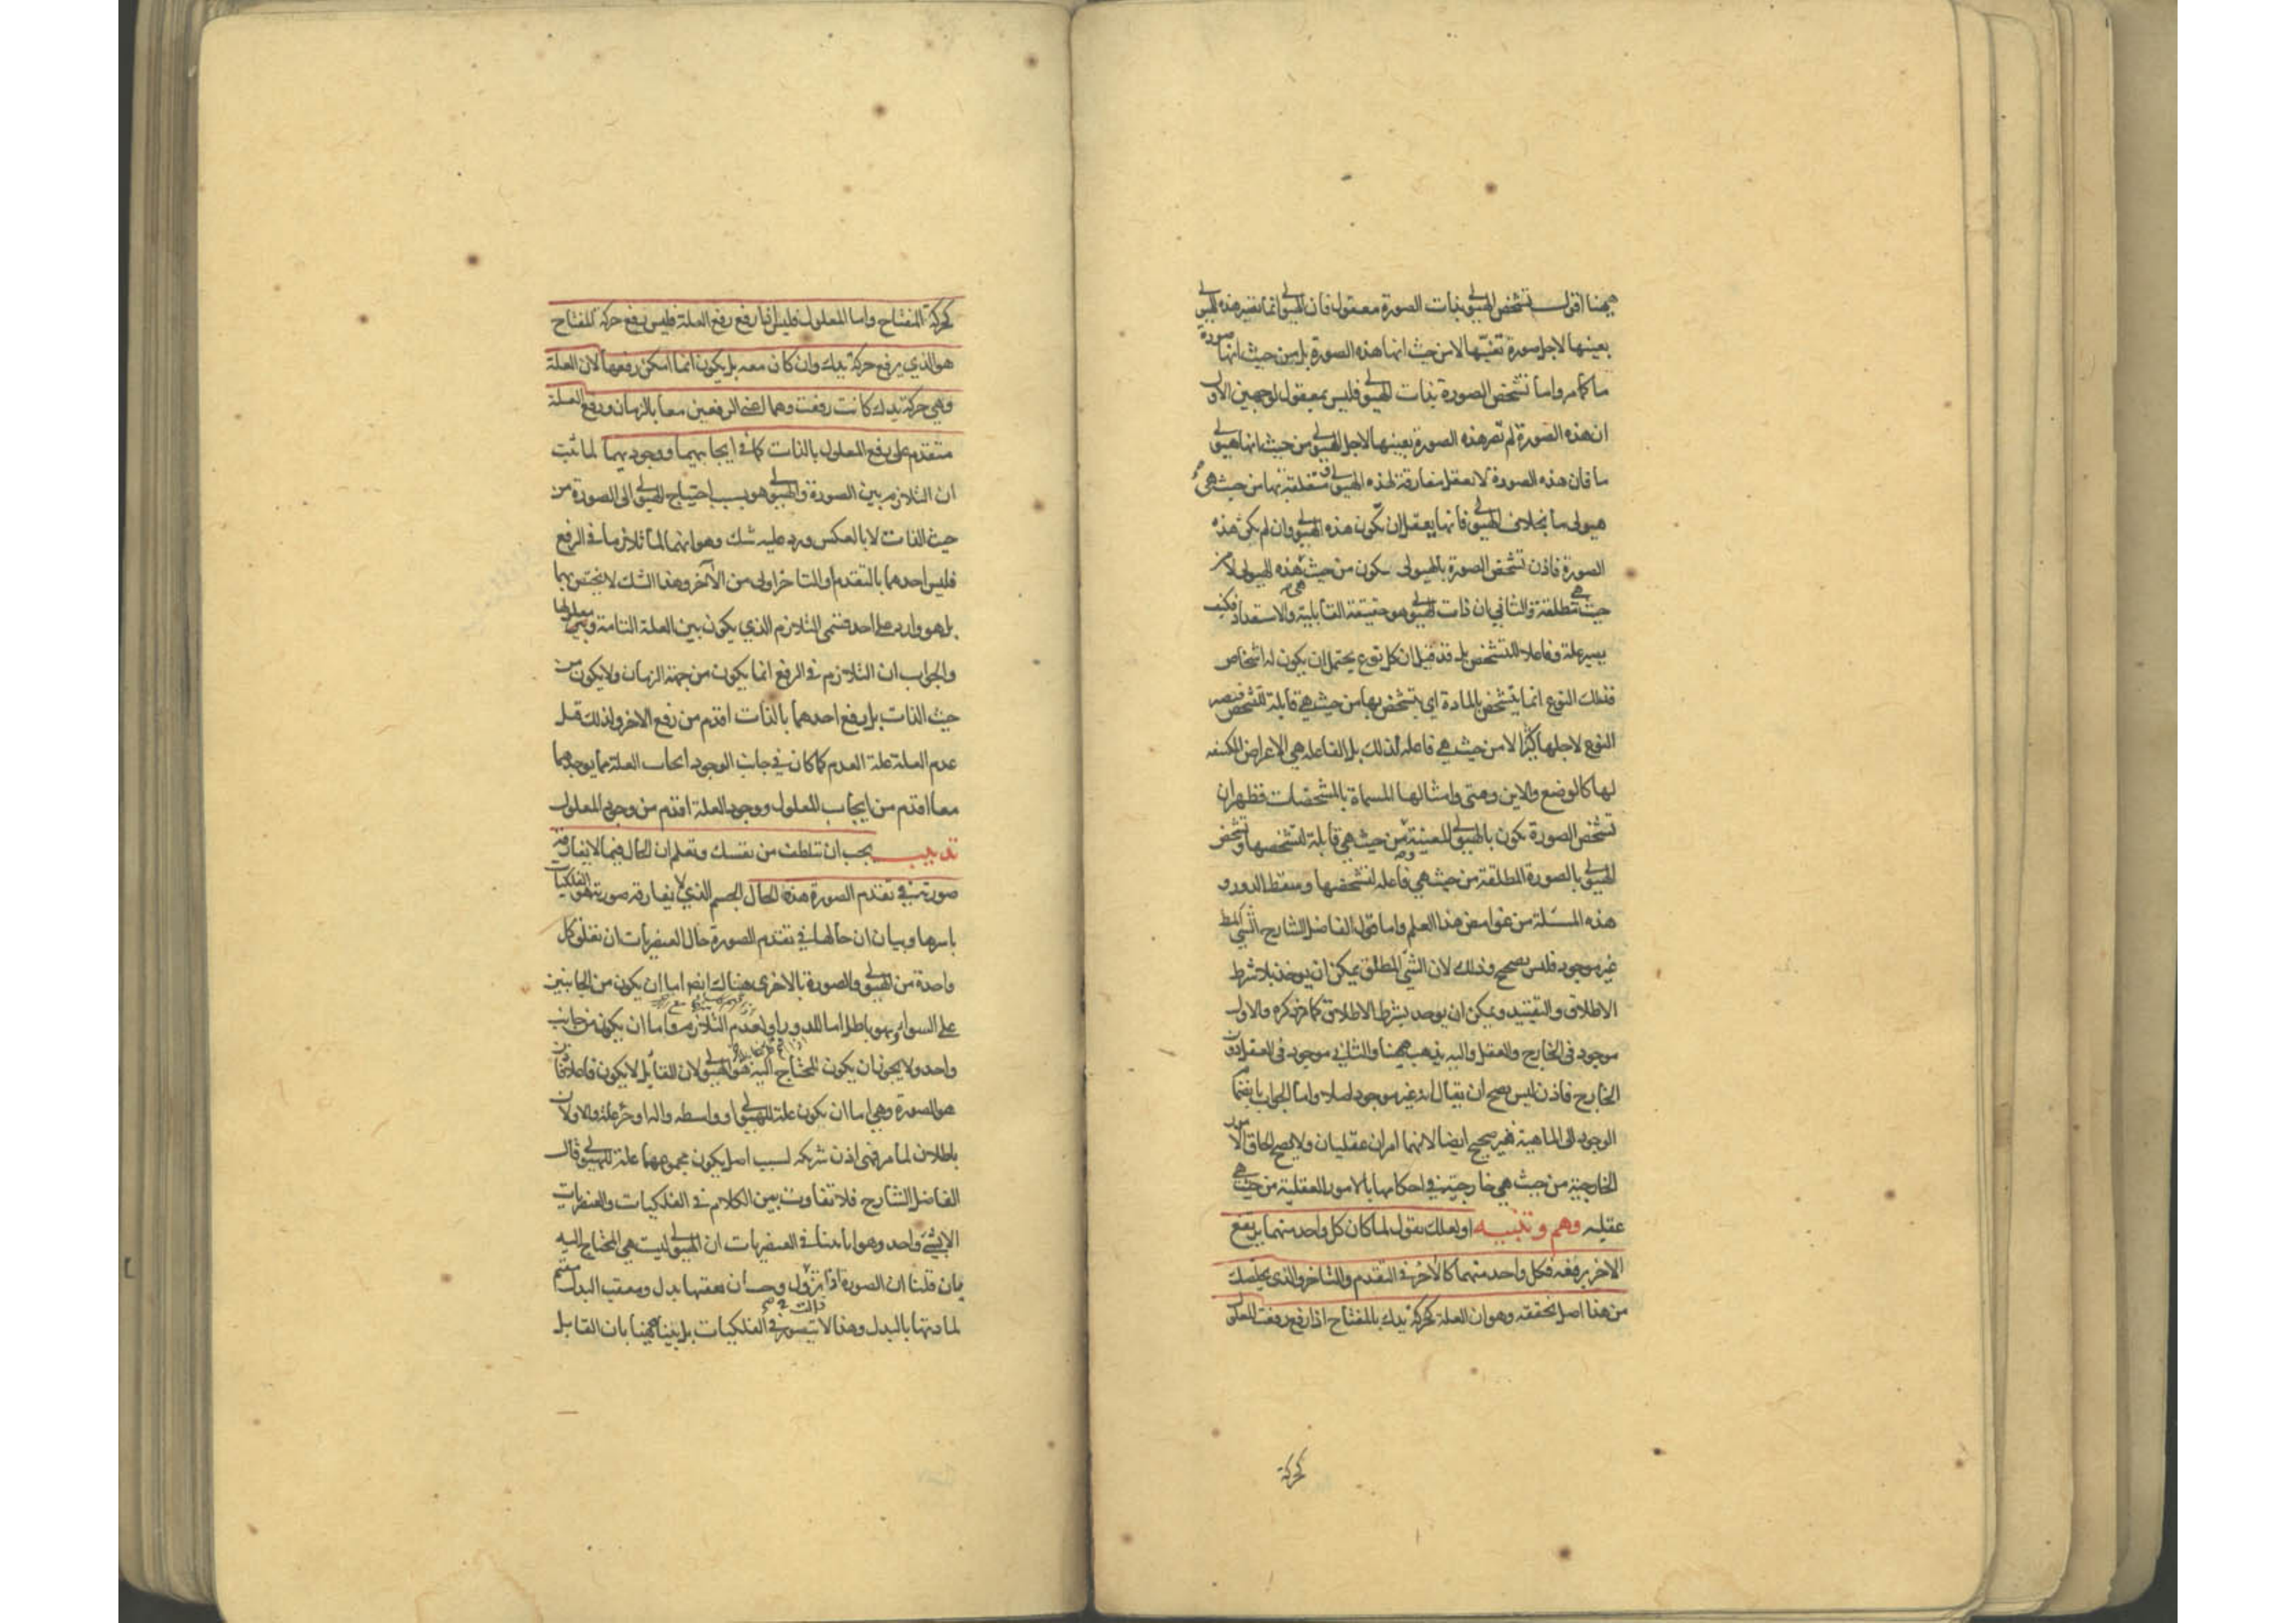 ههنا اقول تشخص الهيولى بذات الصورة معقول فان الهيولى انما تصير هذه الهيولى
بعينها لاجل صورة تعينها لا من حيث انها هذه الصورة بل من حيث انها صورة
ما كما مر واما تشخص الصورة بذات الهيولى فليس بمعقول لوجهين الاول
ان هذه الصورة لم تصر هذه الصورة بعينها لاجل الهيولى من حيث انها هيولى
ما فان هذه الصورة لا يعقل مفارقة لهذه الهيولى متعلقة بها من حيث هي
هيولى ما بخلاف الهيولى فانها يعقل ان تكون هذه الهيولى وان لم تكن هذه
الصورة فاذن تشخص الصورة بالهيولى يكون من حيث هي هذه الهيولى لا من
حيث هي مطلقة والثاني ان ذات الهيولى هو حقيقة القابلية والاستعداد فكيف
يصير علة وفاعلا للتشخص بل قد قيل ان كل نوع يحتمل ان يكون له اشخاص
فذلك النوع انما يتشخص بالمادة اي يتشخص بها من حيث هي قابلة للتشخص فيصير
النوع لاجلها كثيرا لا من حيث هي فاعلة لذلك بل الفاعلة هي الاعراض المكتنفة
لها كالوضع والاين ومتى وامثالها المسماة بالمشخصات فظهر ان
تشخص الصورة يكون بالهيولى المعينة من حيث هي قابلة لتشخصها وتشخص
الهيولى بالصورة المطلقة من حيث هي فاعلة لتشخصها وسقط الدور و
هذه المسئلة من غوامض هذا العلم واما قول الفاضل الشارح الشي المطلق
غير موجود فليس بصحيح وذلك لان الشي المطلق يمكن ان يوخذ بلا شرط
الاطلاق والتقييد ويمكن ان يوخذ بشرط الاطلاق كما مر ذكره والاول
موجود في الخارج والعقل واليه يذهب ههنا والثاني موجود في العقل دون
الخارج فاذن ليس يصح ان يقال انه غير موجود اصلا واما الجواب بانضمام
الوجود الى الماهية فغير صحيح ايضا لانهما امران عقليان ولا يصح الحاق الامور
الخارجية من حيث هي خارجية في احكامها بالامور العقلية من حيث هي
عقليه وهم وتنبيه او لعلك تقول لما كان كل واحد منهما يرتفع
الاخر برفعه فكل واحد منهما كالاخر في التقدم والتاخر والذي يخلصك
من هذا اصل تحققه وهو ان العلة كحركة يدك بالمفتاح اذا رفع رفعت المعلول
كحركة
كحركة المفتاح واما المعلول فليس اذا رفع رفع العلة فليس رفع حركة المفتاح
هو الذي يرفع حركة يدك وان كان معه بل يكون انما امكن رفعها لان العلة
وهي حركة يدك كانت رفعت وهما اعني الرفعين معا بالزمان ورفع العلة
متقدم على رفع المعلول بالذات كما في ايجابهما ووجودهما لما ثبت
ان التلازم بين الصورة والهيولى هو بسبب احتياج الهيولى الى الصورة من
حيث الذات لا بالعكس ورد عليه شك وهو انهما لما تلازما في الرفع
فليس احدهما بالتقدم او التاخر اولى من الاخر وهذا الشك لا يختص بهما
بل هو وارد على احد قسمي التلازم الذي يكون بين العلة التامة وبين معلولها
والجواب ان التلازم في الرفع انما يكون من جهة الزمان ولا يكون من
حيث الذات بل رفع احدهما بالذات اقدم من رفع الاخر ولذلك قيل
عدم العلة علة العدم كما كان في جانب الوجود ايجاب العلة
معا اقدم من ايجاب المعلول ووجود العلة اقدم من وجود المعلول
تذنيب يجب ان تتلطف من نفسك وتعلم ان الحال فيما لا يفارقه
صورته في تقدم الصورة هذه الحال الجسم الذي لا يفارقه صورته هو الفلكيات
باسرها وبيان ان حالها في تقدم الصورة حال العنصريات ان تعلق كل
واحدة من الهيولى والصورة بالاخرى هناك ايضا اما ان يكون من الجانبين
على السواء وهو باطل اما للدور او لعدم التلازم واما ان يكون من جانب
واحد ولا يجوز ان يكون المحتاج اليه هو الهيولى لان القابل لا يكون فاعلا فاذن
هو الصورة وهي اما ان يكون علة للهيولى او واسطه واله او جزء علة والاولان
باطلان لما مر فهي اذن شريكه لسبب اصل يكون مجموعهما علة للهيولى قال
الفاضل الشارح فلا تفاوت بين الكلام في الفلكيات والعنصريات
الا بشيء واحد وهو انا بينا في العنصريات ان الهيولى ليست هي المحتاج اليه
بان قلنا ان الصورة اذا تزول وجب ان يعقبها بدل ومعقب البدل مقيم
لمادتها بالبدل وهذا لا يتصور في الفلكيات بل بينا ههنا بان القابل